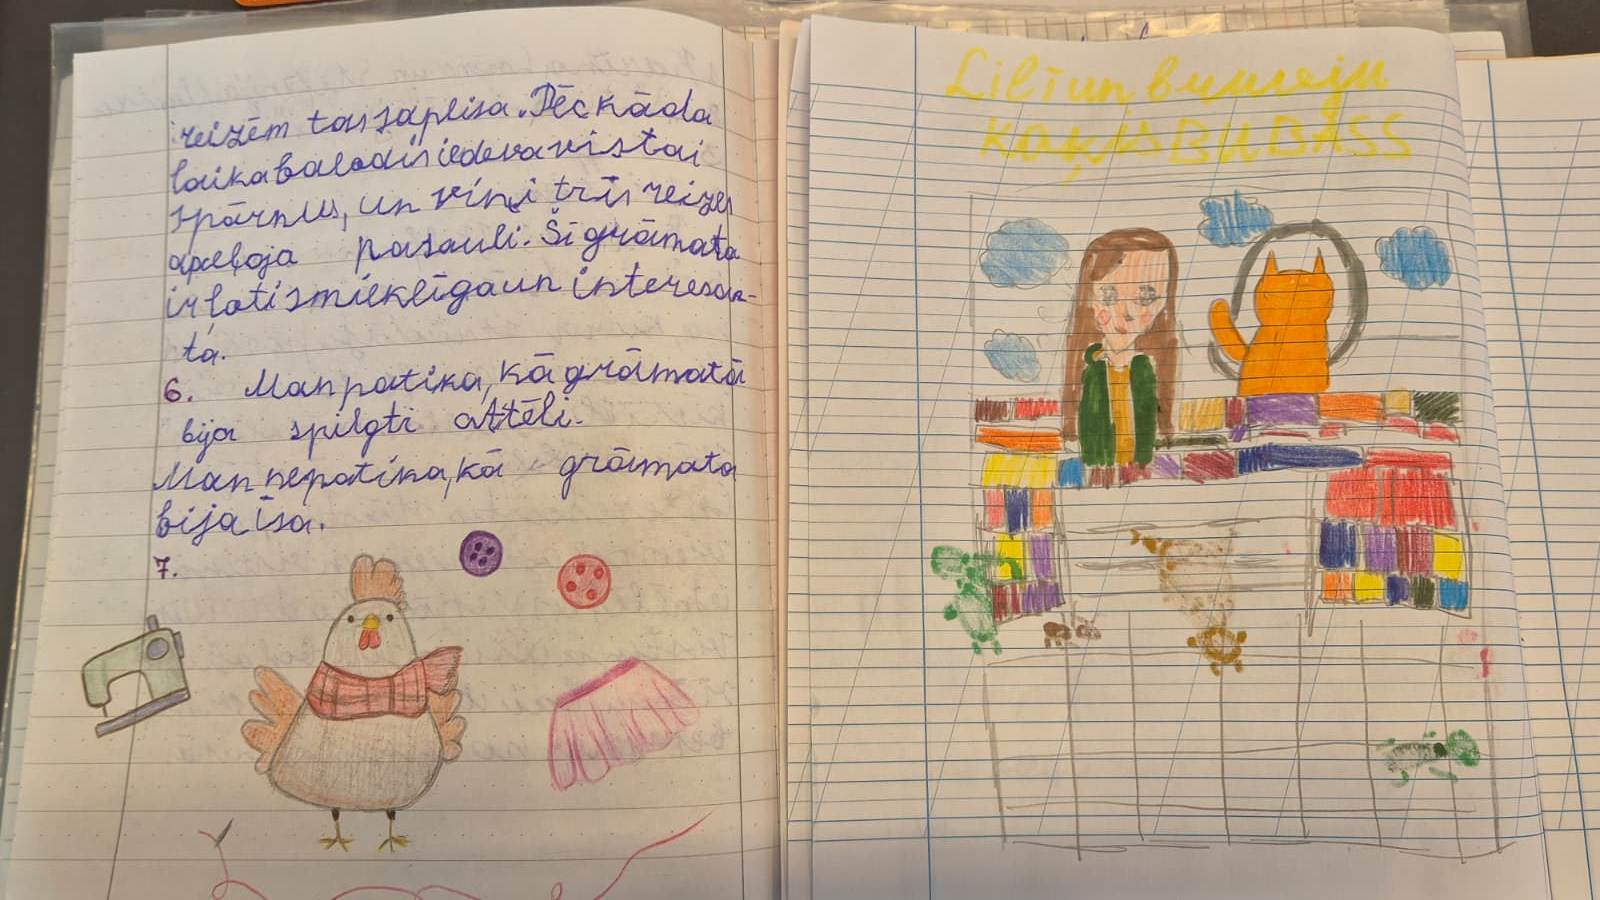 reizēm tas saplīsa. Pēc kāda
laika balodis iedeva vistai
spārnus, un viņi trīs reizes
apceļoja pasauli. Šī grāmata
ir ļoti smieklīga un interesan-
ta.
6. Man patika, kā grāmatā
bija spilgti attēli.
Man nepatika, kā grāmata
bija īsa.
7.
Lilī un burvju
KAĶU BUBASS